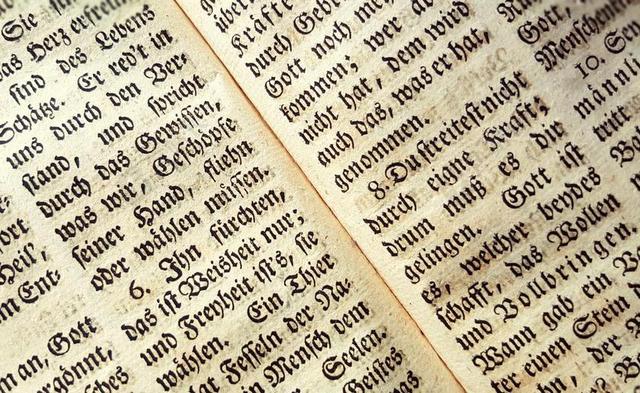 Sie
das Herz erfreuen
sind des Lebens
Schätze. Er red't in
uns durch den Ver-
stand, und spricht
durch das Gewissen,
was wir, Geschöpfe
seiner Hand, fliehn
oder wählen müssen.
6. Ihn fürchten,
das ist Weisheit nur;
und Freyheit ist's, sie
wählen. Ein Thier
Fesseln der Na-
Mensch dem
Seelen.
Geistes
ort
Heil,
m Ent-
m an, Gott
Kräfte
durch Gebet
Gott noch mehr
kommen; wer
nicht hat, dem wird
auch das, was er hat,
genommen.
8. Du streitest nicht
durch eigne Kraft;
drum muß es dir
gelingen. Gott ist
es, welcher beydes
schafft, das Wollen
und Vollbringen.
Wann gab ein
ter einen Stein
Gott,
Menschen
10.
männli
tritt